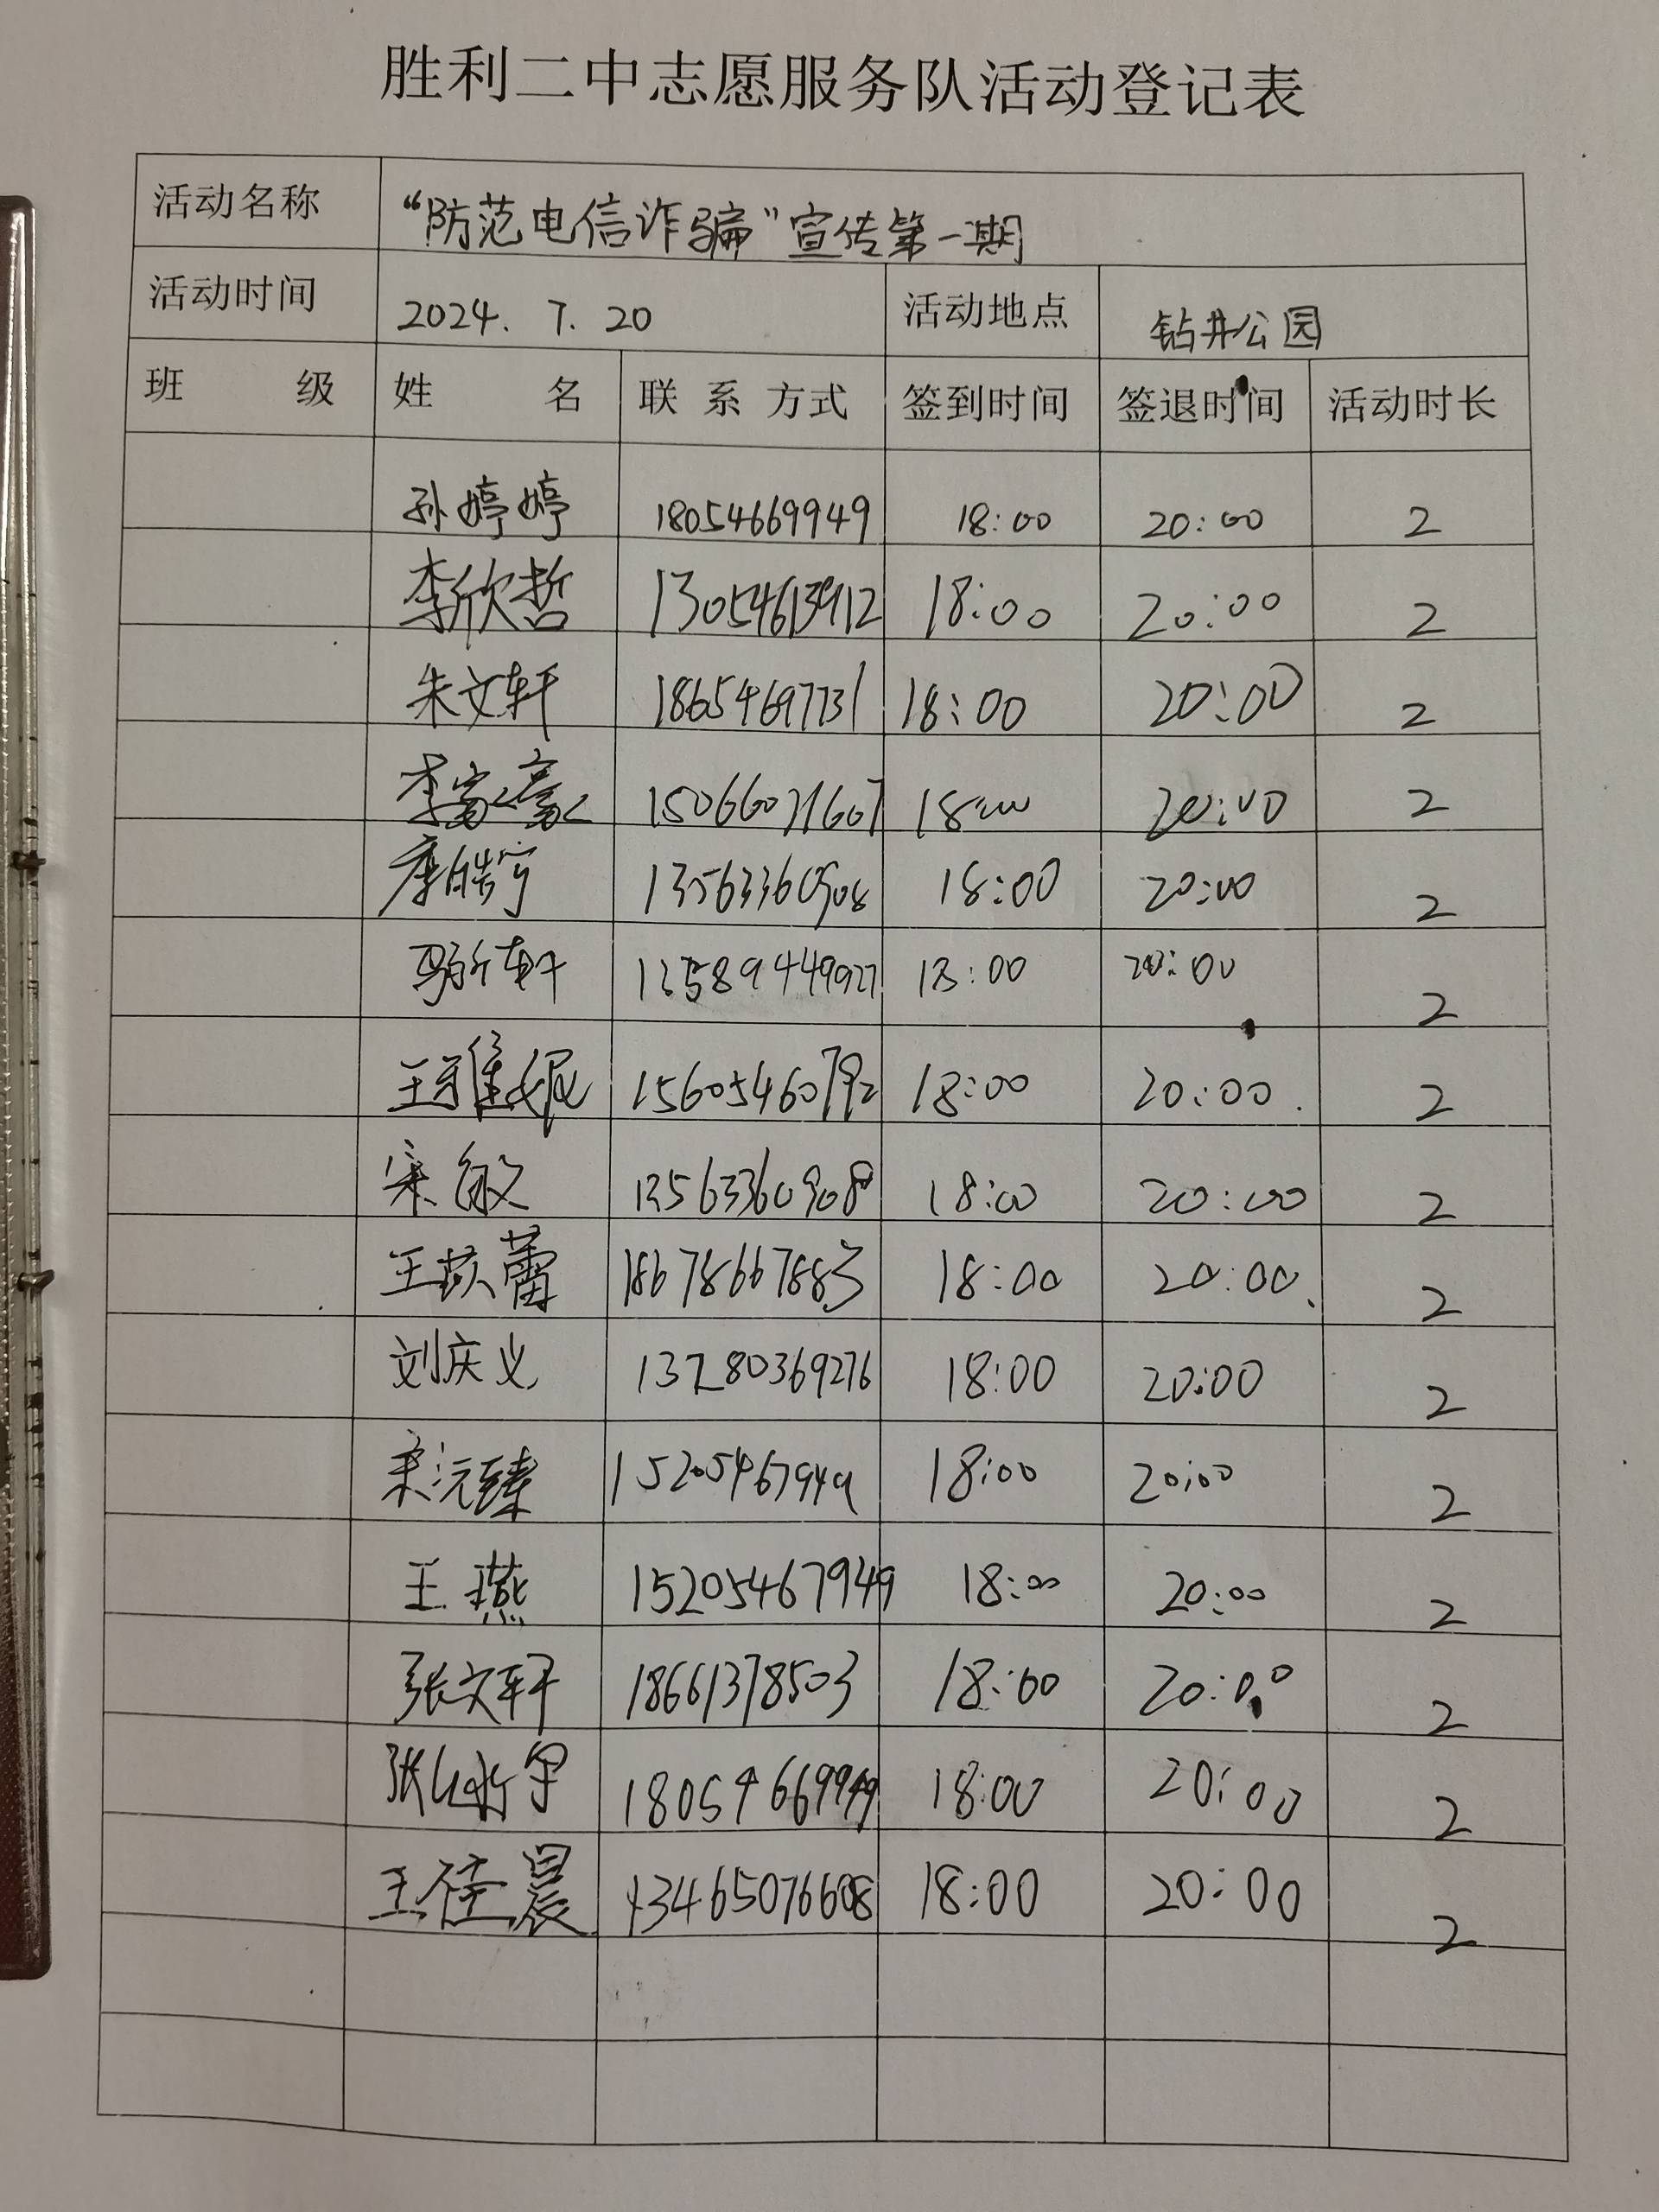 胜利二中志愿服务队活动登记表
活动名称 “防范电信诈骗”宣传第一期
活动时间 2024. 7. 20 活动地点 钻井公园
班 级 姓 名 联系方式 签到时间 签退时间 活动时长
孙婷婷 18054669949 18:00 20:00 2
李欣哲 13054613912 18:00 20:00 2
朱文轩 18654697731 18:00 20:00 2
李家豪 15066071607 18:00 20:00 2
唐皓宇 13563360908 18:00 20:00 2
18:00 20:00 2
王雅妮 15605460792 18:00 20:00 2
宋敏 13563360908 18:00 20:00 2
18678667883 18:00 20:00 2
刘庆义 13780369276 18:00 20:00 2
宋沅臻 15205467949 18:00 20:00 2
王燕 15205467949 18:00 20:00 2
张文轩 18661378503 18:00 20:00 2
18054669949 18:00 20:00 2
王佳晨 13465076608 18:00 20:00 2